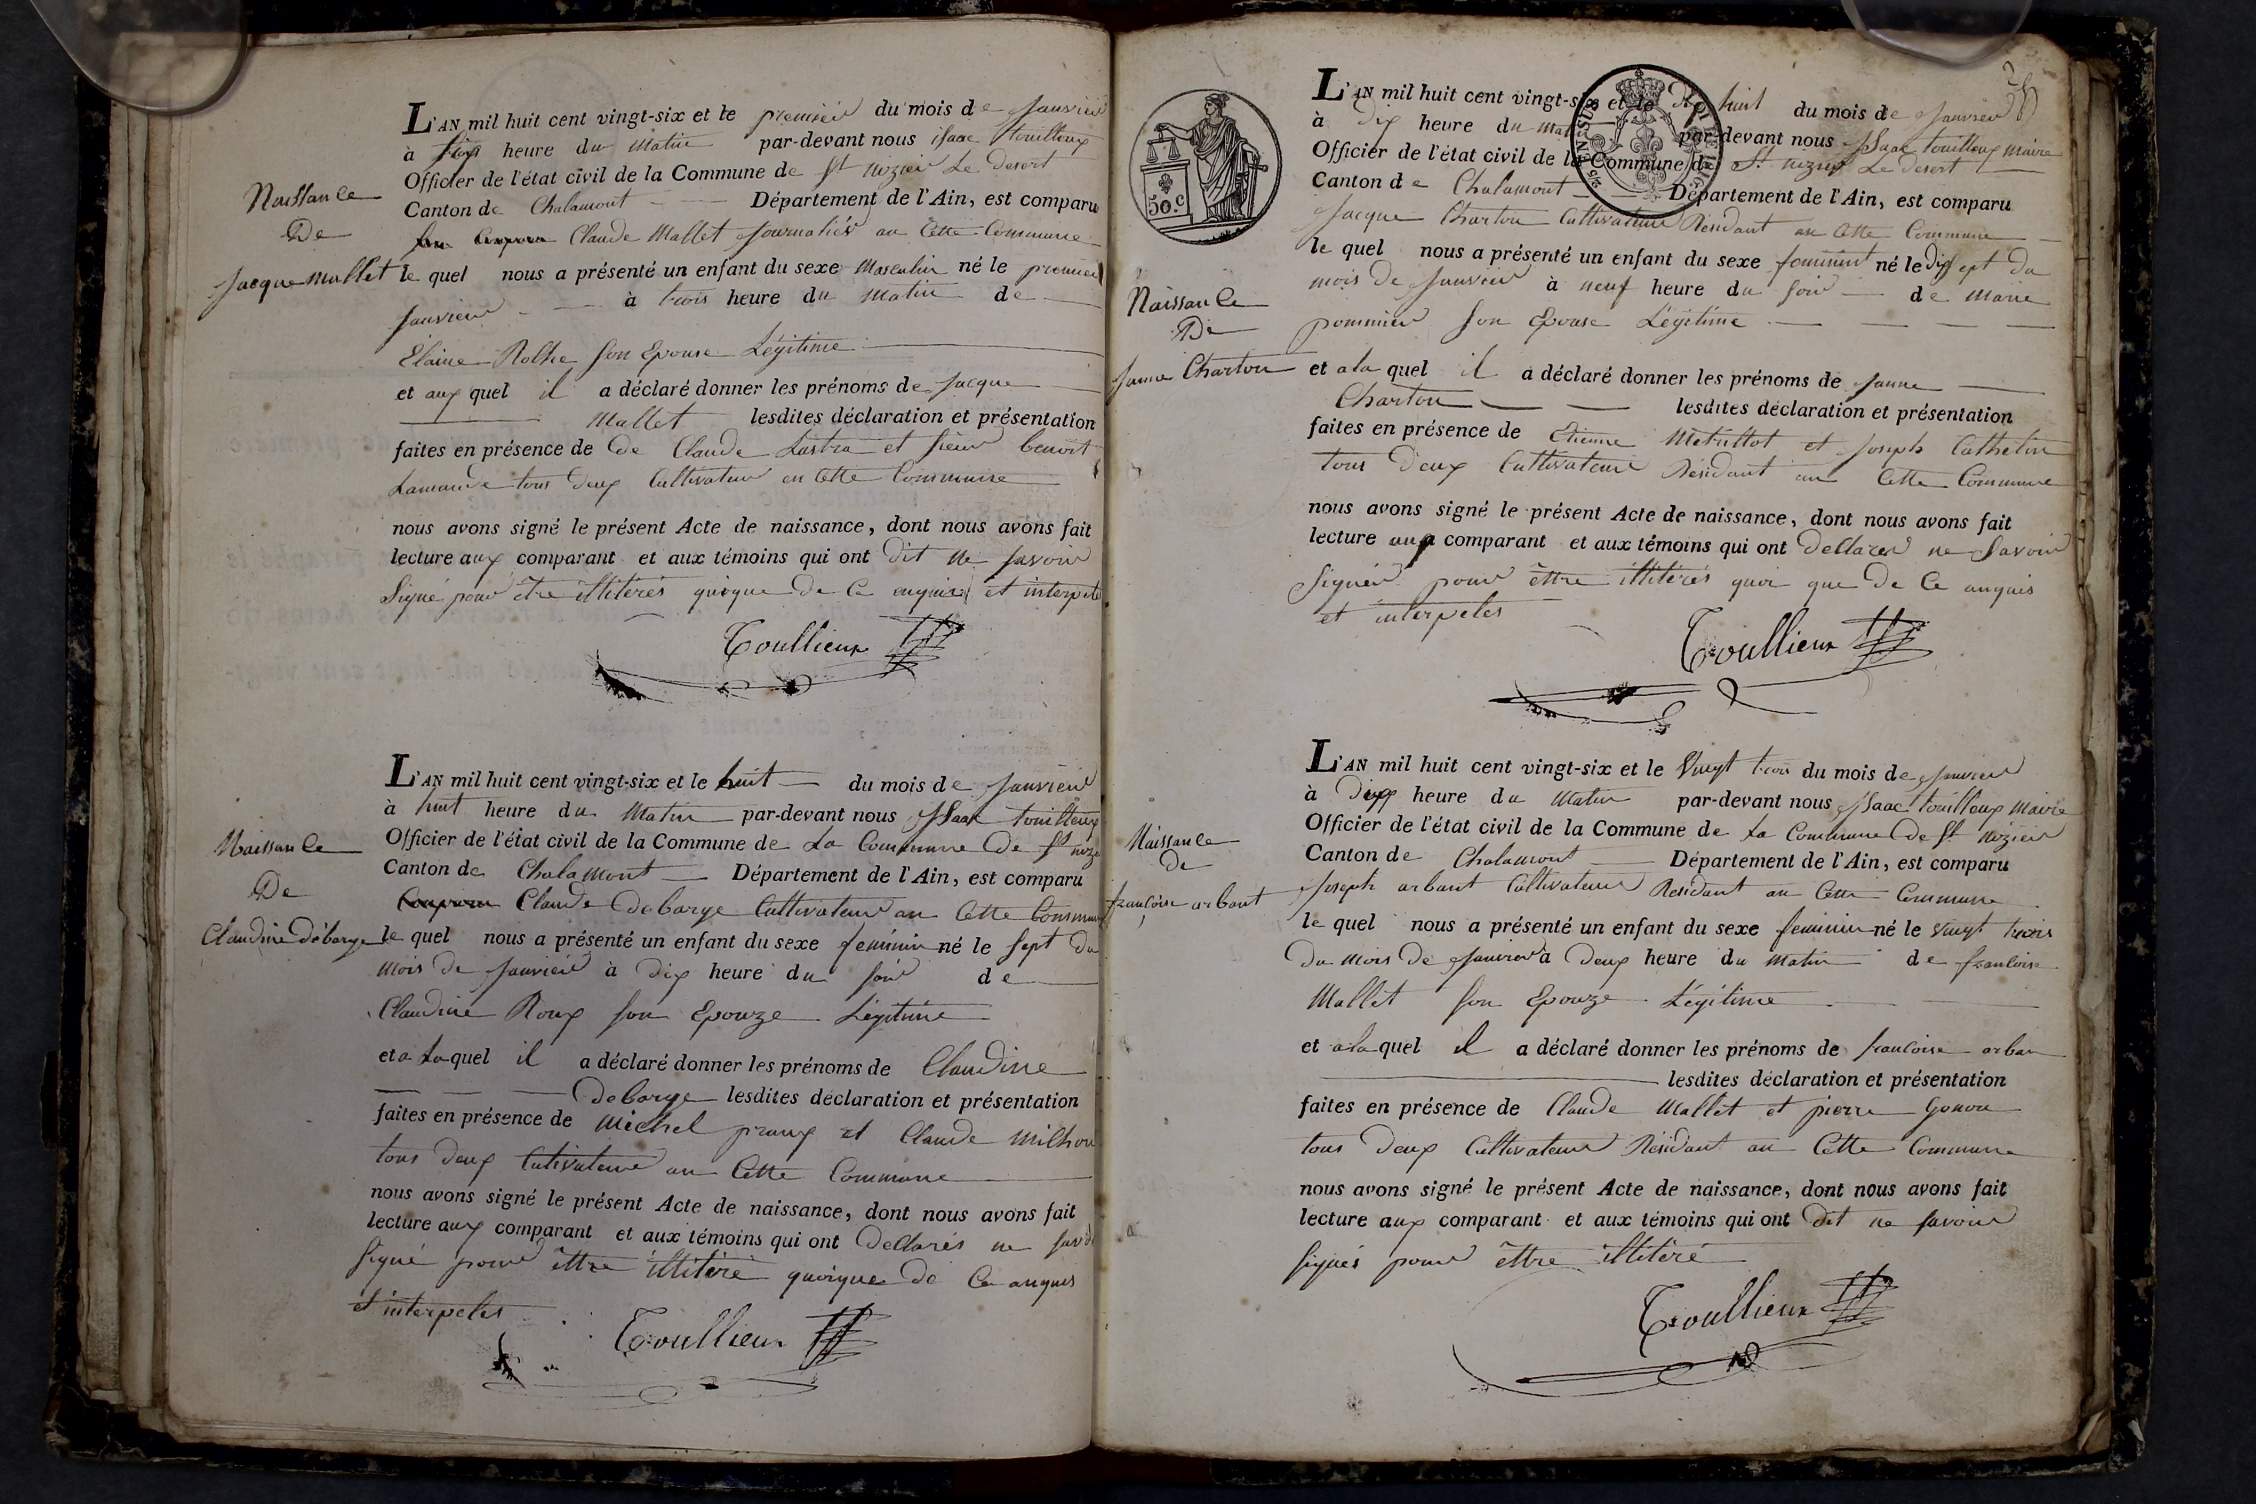 Naissance
De
Jacque Mallet
L'AN mil huit cent vingt-six et le premier du mois de Janvier
à heure du Matin par-devant nous isaac touilloux
Officier de l'état civil de la Commune de St nizier Le Desert
Canton de Chalamont Département de l'Ain, est comparu
Claude Mallet Journalier an Cette Commune
le quel nous a présenté un enfant du sexe Masculin né le premier
Janvier à trois heure du Matin de
Elaine Rolhe son Epouse Légitime
et aux quel il a déclaré donner les prénoms de Jacque
Mallet lesdites déclaration et présentation
faites en présence de de Claude Lastra et sieur benoit
Lamande tous deux Cultivateur en Cette Commune
nous avons signé le présent Acte de naissance, dont nous avons fait
lecture aux comparant et aux témoins qui ont dit ne savoir
Signé pour être illitérés quoique de ce enquis et interpelé
Toullieux
Naissance
De
Claudine Debarge
L'AN mil huit cent vingt-six et le huit du mois de Janvier
à huit heure du Matin par-devant nous isaac touilloux
Officier de l'état civil de la Commune de La Commune De St nizier
Canton de Chalamont Département de l'Ain, est comparu
Claude Debarge Cultivateur an Cette Commune
le quel nous a présenté un enfant du sexe feminin né le sept du
mois de Janvier à Dix heure du soir de
Claudine Roux son Epouze Légitime
et a Laquel il a déclaré donner les prénoms de Claudine
Debarge lesdites déclaration et présentation
faites en présence de Michel praux et Claude Milhon
tous deux Cultivateur an Cette Commune
nous avons signé le présent Acte de naissance, dont nous avons fait
lecture aux comparant et aux témoins qui ont Declarés ne savoir
signé pour êttre illitéré quoique de Ce anquis
et interpelés
Toullieux
28
50.C
Naissance
De
Janne Charton
L'AN mil huit cent vingt-six et le dix huit du mois de Janvier
à Dix heure du Matin par-devant nous isaac touilloux maire
Officier de l'état civil de la Commune de St nizier Le Desert
Canton de Chalamont Département de l'Ain, est comparu
Jacque Charton Cultivateur Résidant an Cette Commune
le quel nous a présenté un enfant du sexe feminint né le dix sept du
mois de Janvier à neuf heure du soir de Marie
pommier son Epouse Légitime
et a la quel il a déclaré donner les prénoms de Janne
Charton lesdites déclaration et présentation
faites en présence de Etienne Metrillot et Joseph Cathelin
tous Deux Cultivateur Résidant an Cette Commune
nous avons signé le présent Acte de naissance, dont nous avons fait
lecture aux comparant et aux témoins qui ont Déclarer ne Savoir
Signér pour êttre illitérés quoi que de Ce anquis
et interpelés
Toullieux
Naissance
de
françoise arbant
L'AN mil huit cent vingt-six et le Vingt trois du mois de Janvier
à Dix heure du Matin par-devant nous isaac touilloux Maire
Officier de l'état civil de la Commune de La Commune De St nizier
Canton de Chalamont Département de l'Ain, est comparu
Joseph arbant Cultivateur Residant an Cette Commune
le quel nous a présenté un enfant du sexe feminin né le vingt trois
Du mois De Janvier à Deux heure du Matin de francoise
Mallet son Epouze Légitime
et a la quel il a déclaré donner les prénoms de francoise arban
lesdites déclaration et présentation
faites en présence de Claude Mallet et pierre Gonon
tous Deux Cultivateur Résidant an Cette Commune
nous avons signé le présent Acte de naissance, dont nous avons fait
lecture aux comparant et aux témoins qui ont dit ne savoir
signés pour êttre illitéré
Toullieux